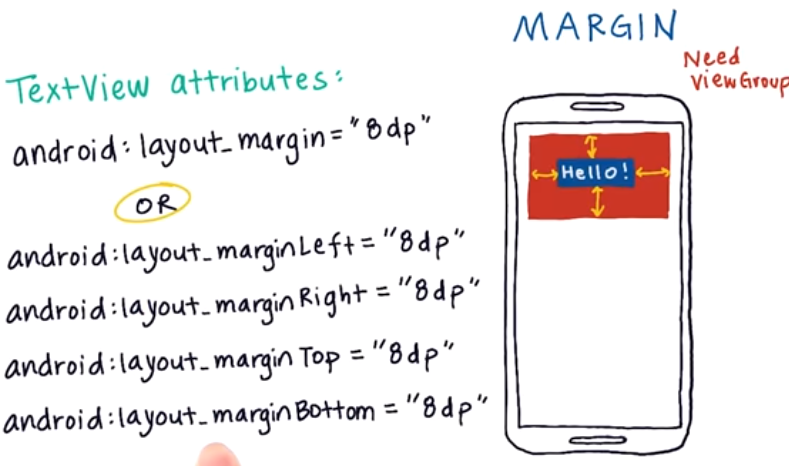 MARGIN
Need
ViewGroup
TextView attributes:
android:layout_margin="8dp"
OR
android:layout_marginLeft="8dp"
android:layout_marginRight="8dp"
android:layout_marginTop="8dp"
android:layout_marginBottom="8dp"
Hello!